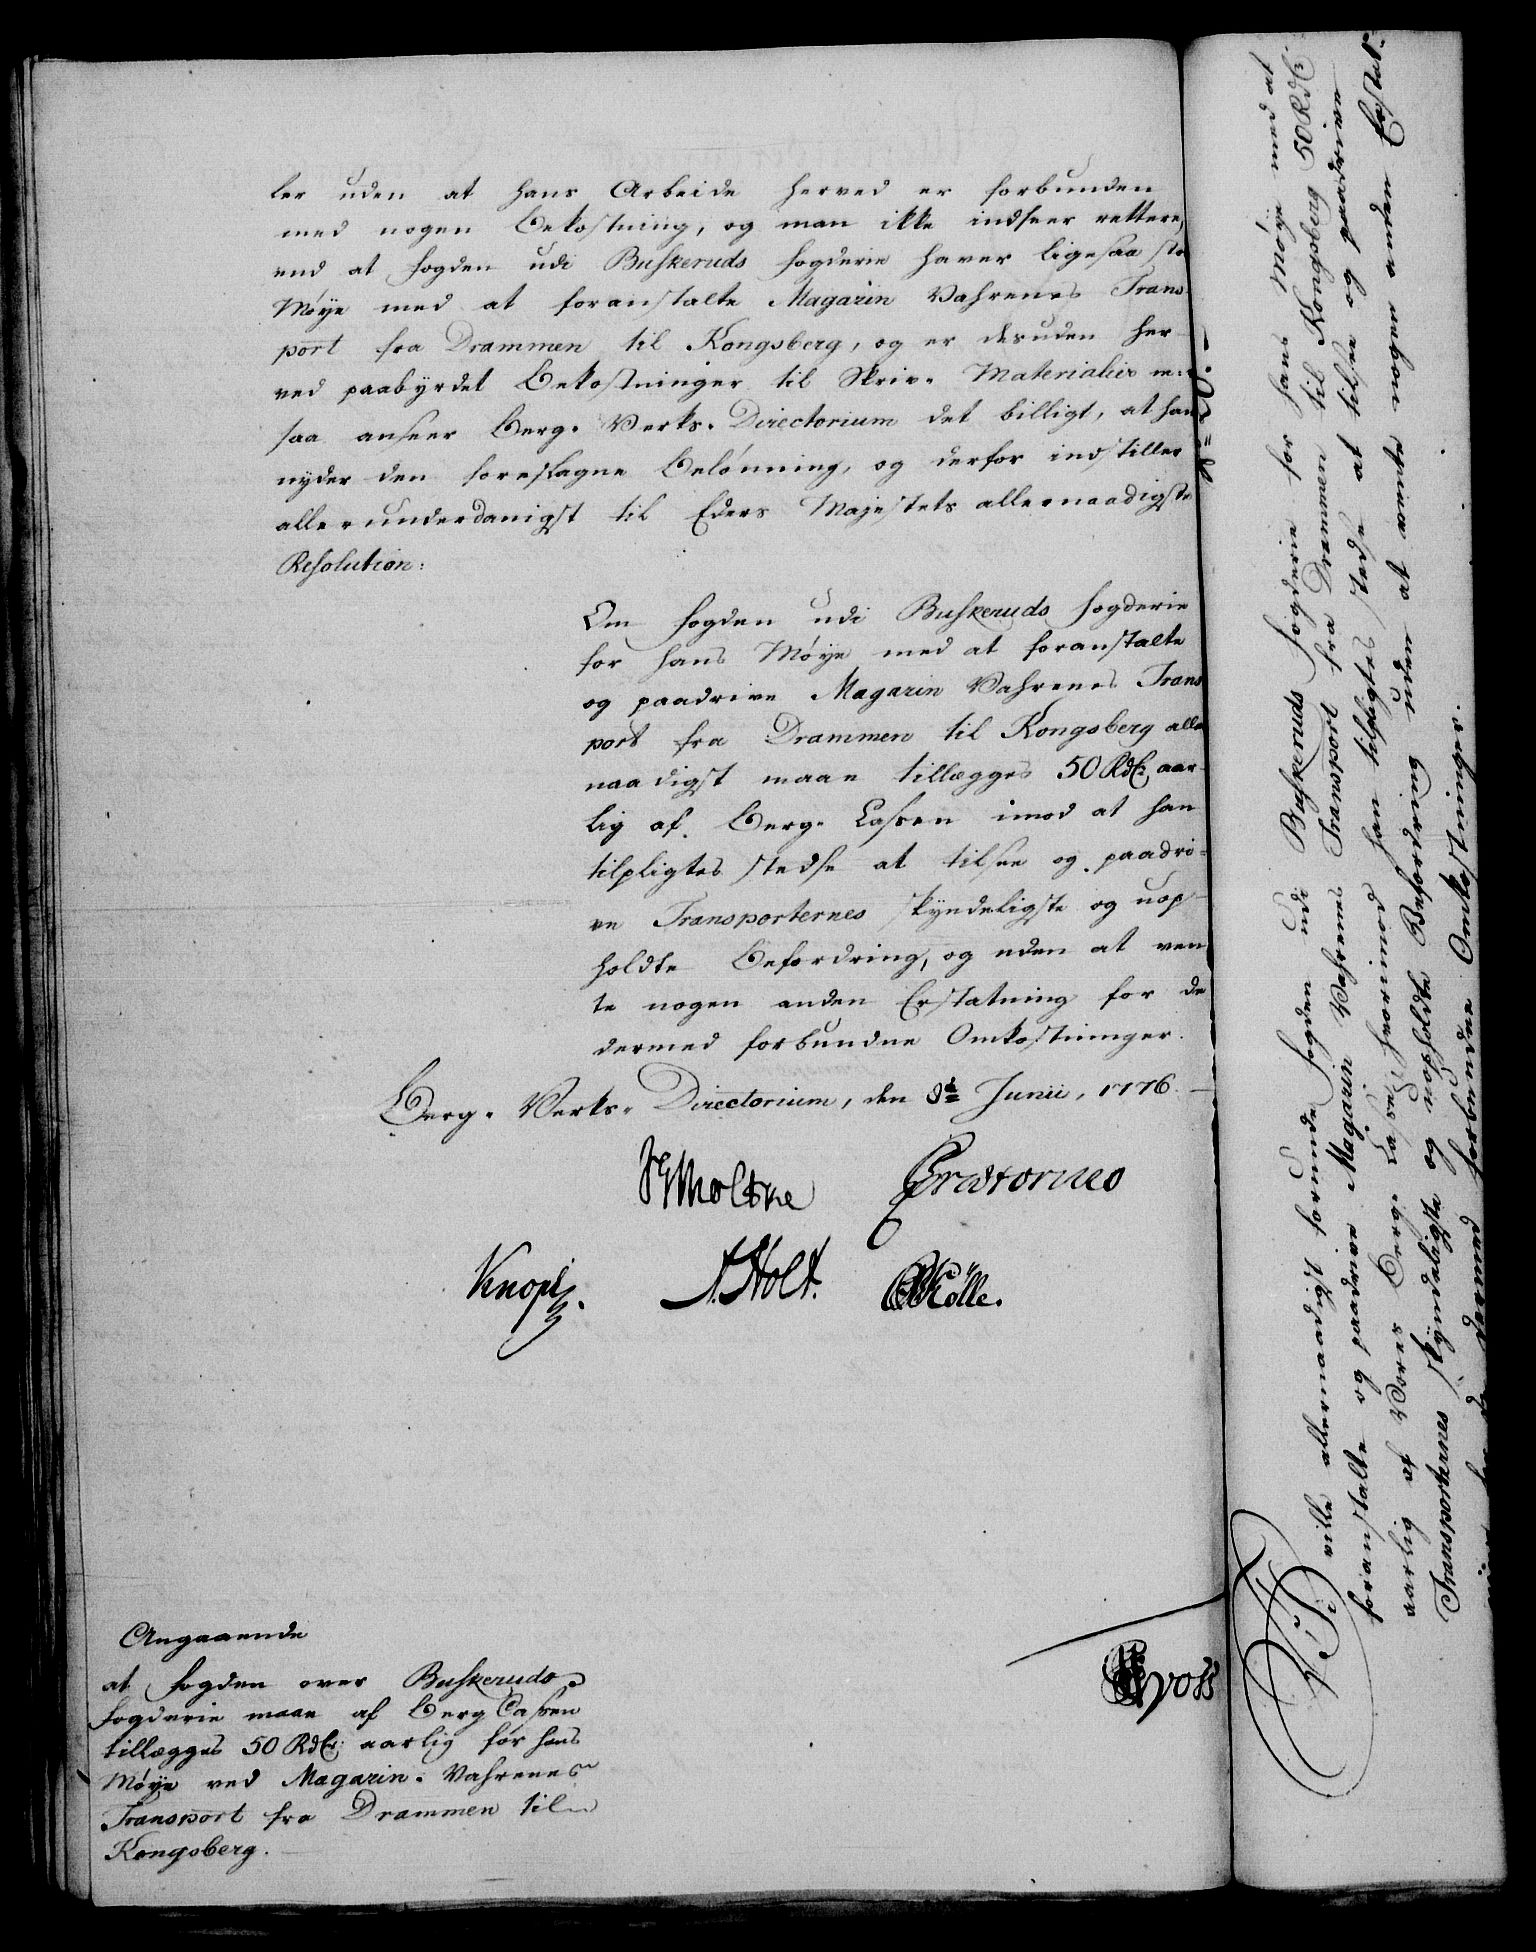 ler uden at hans Arbeide herved er forbunden
med nogen Bekostning, og man ikke indseer rettere,
end at Fogden udi Buskeruds Fogderie haver ligesaa sto
Møye med at foranstalte Magazin Vahrenes Trans-
port fra Drammen til Kongsberg, og er desuden her-
ved paabyrdet Bekostninger til Skriv- Materialier m:
saa anseer Berg- Verks- Directorium det billigt, at han
nyder den foreslagne Belønning, og derfor indstilles
aller underdanigst til Eders Majestets allernaadigste
Resolution:
Om Fogden udi Buskeruds Fogderie
for hans Møye med at foranstalte
og paadrive Magazin Vahrenes Trans
port fra Drammen til Kongsberg aller
naadigst maae tillægges 50 Rdlr aar-
lig af Berg- Cassen imod at han
tilpligtes stedse at tilsee og paadri-
ve Transporternes skyndeligste og uop-
holdte Befordring, og uden at ven
te nogen anden Erstatning for de
dermed forbundne Omkostninger.
Berg- Verks- Directorium, den 8de Junii, 1776.
Moltke Prætorius
Knoph. Holt. Kølle.
Angaaende
at Fogden over Buskeruds
Fogderie maae af Berg Cassen
tillægges 50 Rdlr: aarlig før hans
Møye ved Magazin- Vahrenes
Transport fra Drammen til
Kongsberg.
Vi ville allernaadigst forunde Fogden udi Buskeruds Fogderie for hans Møye med at
foranstalte og paadrive Magazin Vahrenes Transport fra Drammen til Kongsberg 50 Rdlr
aarlig af Vores Berg- Casse, hvorimod han tilpligtes stedse at tilsee og paadrive
Transporternes skyndeligste og uopholdte Befordring uden at vente nogen anden Erstat-
ning for de dermed forbundne Omkostninger.